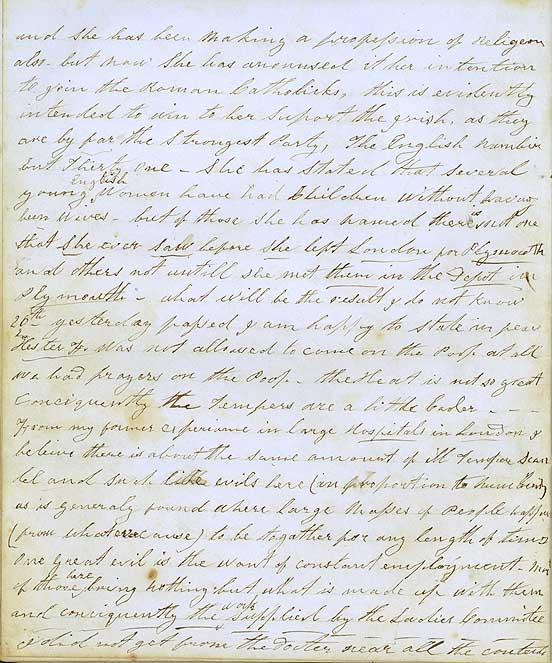 and she has been making a profession of Religeon
also but now she has announsed it her intention
to join the Roman Catholicks, this is evidently
intended to win to her support the Irish, as they
are by far the Strongest Party, The English number
but Thirty One - She has stated that several
young English Women have had Children without having
been Wives - but of those she has named there is not one
that she ever saw before she left London for Plymouth
and others not untill she met them in the Depot in
Plymouth - what will be the result I do not know
26th yesterday passed I am happy to state in peace
Hester F. was not allowed to come on the Poop at all
we had prayers on the Poop. the Heat is not so great
conciquently the Tempers are a little Cooler - - -
From my former experience in large Hospitals in London I
beleive there is about the same amount of ill Temper Scan
del and such like evils here (in proportion to numbers)
as is generaly found where large Masses of People happen
(from whatever cause) to be together for any length of time
One great evil is the want of constant employment -
of those here, bring nothing but what is made up with them
and conciquently the work supplied by the Ladies Committee
I did not get from the Docter near all the contents